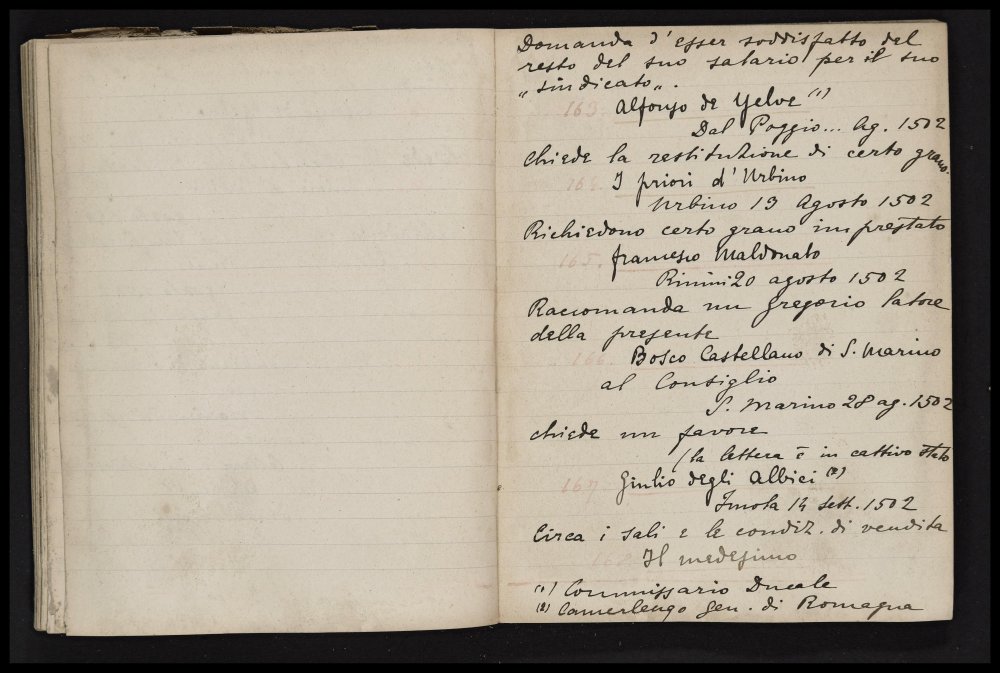 Domanda d'esser soddisfatto del
resto del suo salario per il suo
„sindicato„.
163. Alfonso de Yelve (1)
Dal Poggio... Ag. 1502
Chiede la restituzione di certo grano.
164. I priori d'Urbino
Urbino 13 Agosto 1502
Richiedono certo grano imprestato
165. Francesco Maldonato
Rimini 20 agosto 1502
Raccomanda un Gregorio latore
della presente
166. Bosco Castellano di S. Marino
al Consiglio
S. Marino 28 ag. 1502
chiede un favore
(la lettera è in cattivo stato
167. Giulio degli Albici (2)
Imola 14 Sett. 1502
Circa i sali e le condiz. di vendita
168. Il medesimo
(1) Commissario Ducale
(2) Camerlengo Gen. di Romagna